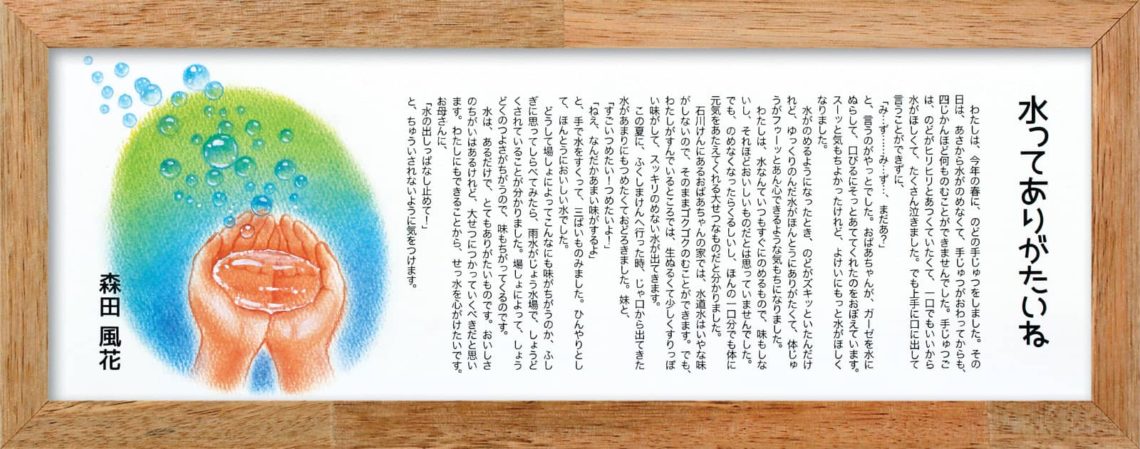 水ってありがたいね
わたしは、今年の春に、のどの手じゅつをしました。その
日は、あさから水がのめなくて、手じゅつがおわってからも、
四じかんほど何ものむことができませんでした。手じゅつご
は、のどがヒリヒリとあつくていたくて、一口でもいいから
水がほしくて、たくさん泣きました。でも上手に口に出して
言うことができずに、
「み…ず……み・ず…、まだあ？」
と、言うのがやっとでした。おばあちゃんが、ガーゼを水に
ぬらして、口びるにそっとあててくれたのをおぼえています。
スーッと気もちよかったけれど、よけいにもっと水がほしく
なりました。
水がのめるようになったとき、のどがズキッといたんだけ
れど、ゆっくりのんだ水がほんとうにありがたくて、体じゅ
うがフゥーッとあん心できるような気もちになりました。
わたしは、水なんていつもすぐにのめるもので、味もしな
いし、それほどおいしいものだとは思っていませんでした。
でも、のめなくなったらくるしいし、ほんの一口分でも体に
元気をあたえてくれる大せつなものだと分かりました。
石川けんにあるおばあちゃんの家では、水道水はいやな味
がしないので、そのままゴクゴクのむことができます。でも、
わたしがすんでいるところでは、生ぬるくて少しくすりっぽ
い味がして、スッキリのめない水が出てきます。
この夏に、ふくしまけんへ行った時、じゃ口から出てきた
水があまりにもつめたくておどろきました。妹と、
「すごいつめたい！つめたいよ！」
「ねえ、なんだかあまい味がするよ」
と、手で水をすくって、三ばいものみました。ひんやりとし
て、ほんとうにおいしい水でした。
どうして場しょによってこんなにも味がちがうのか、ふし
ぎに思ってしらべてみたら、雨水がじょう水場で、しょうど
くされていることが分かりました。場しょによって、しょう
どくのつよさがちがうので、味もちがってくるのです。
水は、あるだけで、とてもありがたいものです。おいしさ
のちがいはあるけれど、大せつにつかっていくべきだと思い
ます。わたしにもできることから、せっ水を心がけたいです。
お母さんに、
「水の出しっぱなし止めて！」
と、ちゅういされないように気をつけます。
森田 風花